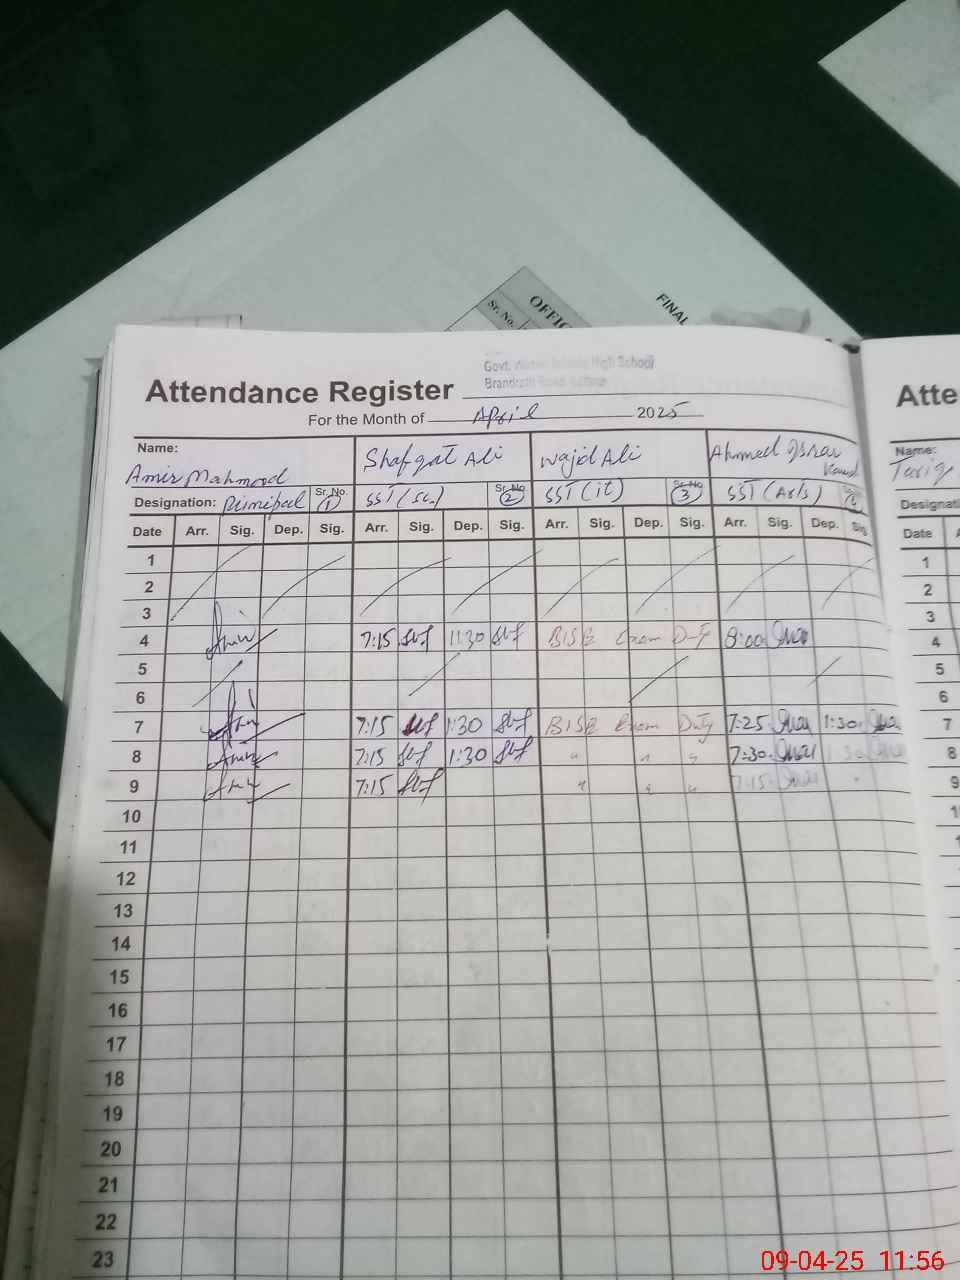 OFFIC
Sr. No.
FINAL
Govt. High School
Brandreth Road Lahore
Attendance Register
Atte
For the Month of April 2025
Name: Amir Mahmood Shafqat Ali Wajid Ali Ahmed
Name: Tariq
Designation: Principal Sr. No. 1 SST (Sc.) Sr. No. 2 SST (it) Sr. No. 3 SST (Arts)
Designati
Date Arr. Sig. Dep. Sig. Arr. Sig. Dep. Sig. Arr. Sig. Dep. Sig. Arr. Sig. Dep. Sig
Date A
1 1
2 2
3 3
4 7:15 11:30 BISE Exam Duty 8:00 4
5 5
6 6
7 7:15 1:30 BISE Exam Duty 7:25 1:30 7
8 7:15 1:30 " " " 7:30 1:30 8
9 7:15 " " " 7:15 9
10 10
11
12
13
14
15
16
17
18
19
20
21
22
23
09-04-25 11:56